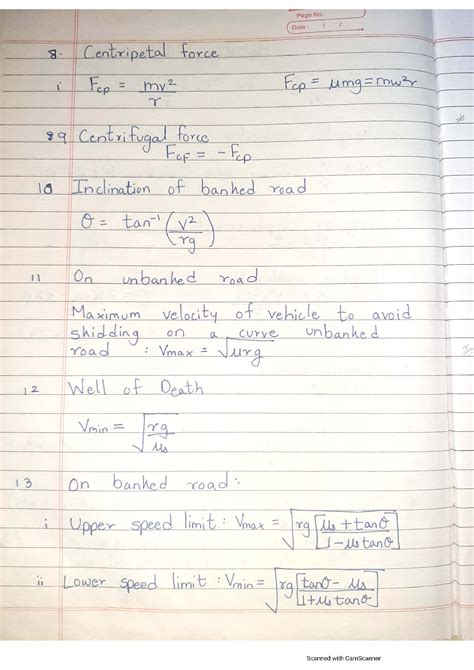 Page No.
Date : / /
8. Centripetal force
i Fcp = mv²/r Fcp = μmg = mω²r
9 Centrifugal force
FCF = - Fcp
10 Inclination of banked road
θ = tan⁻¹ (v²/rg)
11 On unbanked road
Maximum velocity of vehicle to avoid
skidding on a curve unbanked
road : Vmax = √μrg
12 Well of Death
Vmin = √(rg/μs)
13 On banked road :
i Upper speed limit : Vmax = √(rg [μs + tanθ / 1 - μs tanθ])
ii Lower speed limit : Vmin = √(rg [tanθ - μs / 1 + μs tanθ])
Scanned with CamScanner